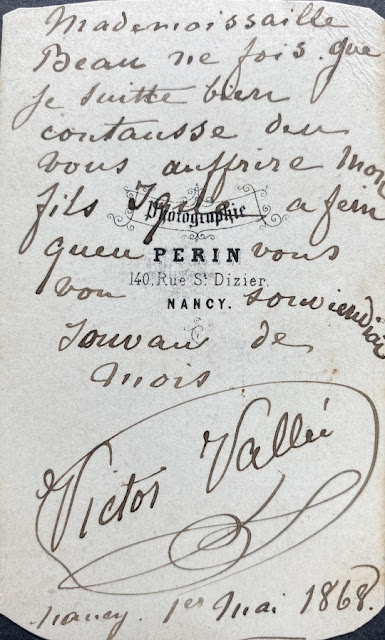 Mademoissaille
Beau ne fois que
je suitte bien
contausse deu
vous auffrire Mon
fils a fein
Photographie
queu vous
PERIN
140, Rue St Dizier.
vou souviendrai
NANCY.
Souvau de
Mois
Victor Vallée
Nancy. 1er Mai 1868.